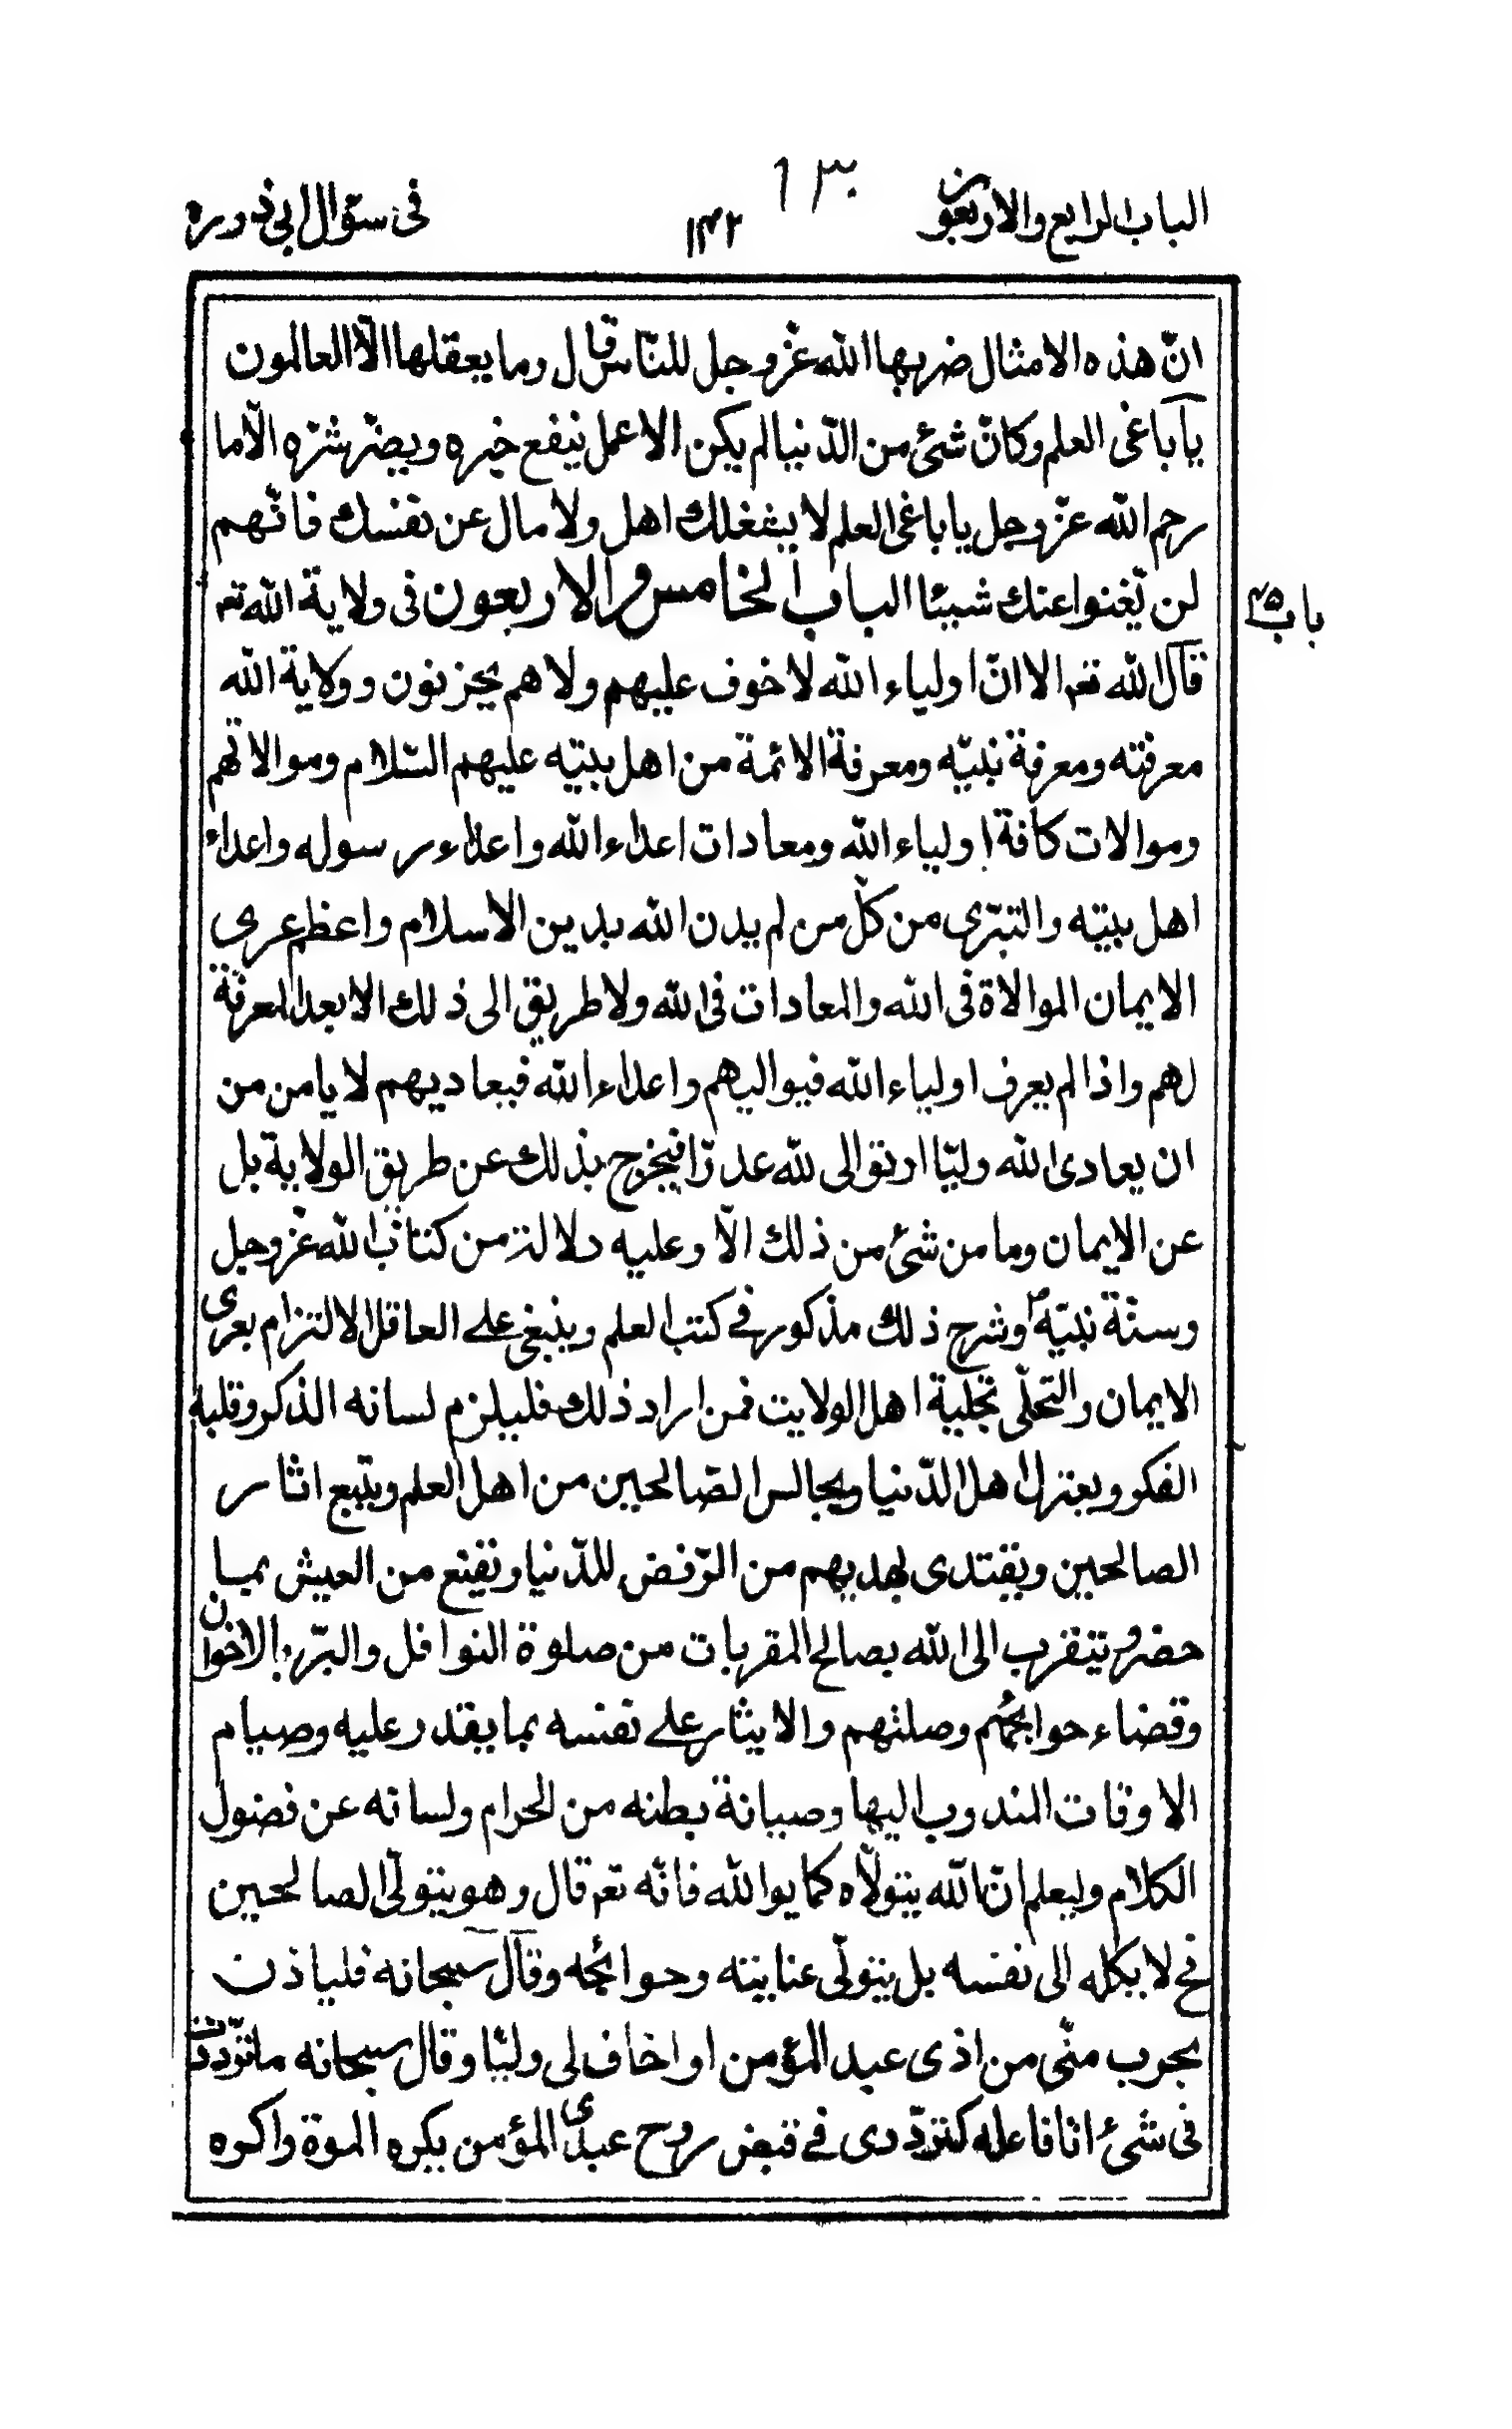 الباب الرابع والاربعون ۱۴۲ فى سؤال ابى ذر ره
۱۳۰
انّ هذه الامثال ضربها الله عزّ وجل للنّاس قال وما يعقلها الّا العالمون
يا باغى العلم وكانّ شئ من الدّنيا لم يكن الا عمل ينفع خيره ويضرّ شرّه الّا ما
رحم الله عزّ وجل يا باغى العلم لا يشغلك اهل ولا مال عن نفسك فانّهم
لن يغنوا عنك شيئا الباب الخامس والاربعون فى ولاية الله تعـ
باب ۴۵
قال الله تعـ الا انّ اولياء الله لا خوف عليهم ولا هم يحزنون وولاية الله
معرفته ومعرفة نبيّه ومعرفة الائمة من اهل بيته عليهم السّلام وموالاتهم
وموالات كافة اولياء الله ومعادات اعداء الله واعداء رسوله واعداء
اهل بيته والتبرّى من كلّ من لم يدن الله بدين الاسلام واعظم عرى
الايمان الموالاة فى الله والمعادات فى الله ولا طريق الى ذلك الا بعد المعرفة
لهم واذا لم يعرف اولياء الله فيواليهم واعداء الله فيعاديهم لا يامن من
ان يعادى الله وليّا او توالى لله عدوّا فيخرج بذلك عن طريق الولاية بل
عن الايمان وما من شئ من ذلك الّا وعليه دلالة من كتاب الله عزّ وجل
وسنّة نبيّه ص وشرح ذلك مذكور فے كتب العلم وينبغى علے العاقل الالتزام بعرى
الايمان والتحلّى بحلية اهل الولايت فمن اراد ذلك فليلزم لسانه الذكر وقلبه
الفكر ويعتزل اهل الدّنيا ويجالس الصّالحين من اهل العلم ويتبع اثار
الصالحين ويقتدى بهديهم من الرّفض للدّنيا ونقيع من العيش بما
حضر ويتقرب الى الله بصالح المقربات من صلوة النوافل والبرّ بالاخوان
وقضاء حوائجهم وصلتهم والايثار علے نفسه بما يقدر عليه وصيام
الاوقات المندوب اليها وصيانة بطنه من الحرام ولسانه عن فضول
الكلام وليعلم انّ الله يتولّاه كما يوالله فانّه تعـ قال وهو يتولّى الصالحين
فح لا يكله الى نفسه بل يتولّى عنايته وحوائجه وقال سبحانه فلياذن
بحرب منّى من اذى عبد المؤمن او اخاف لى وليّا وقال سبحانه ما تردّدت
فى شئ انا فاعله كتردّدى فے قبض روح عبدى المؤمن يكره الموة واكره